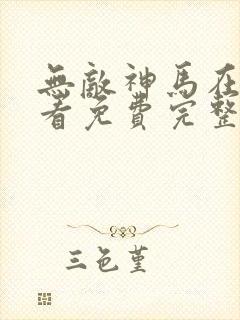 無敵神馬在
看免費完整
三色堇